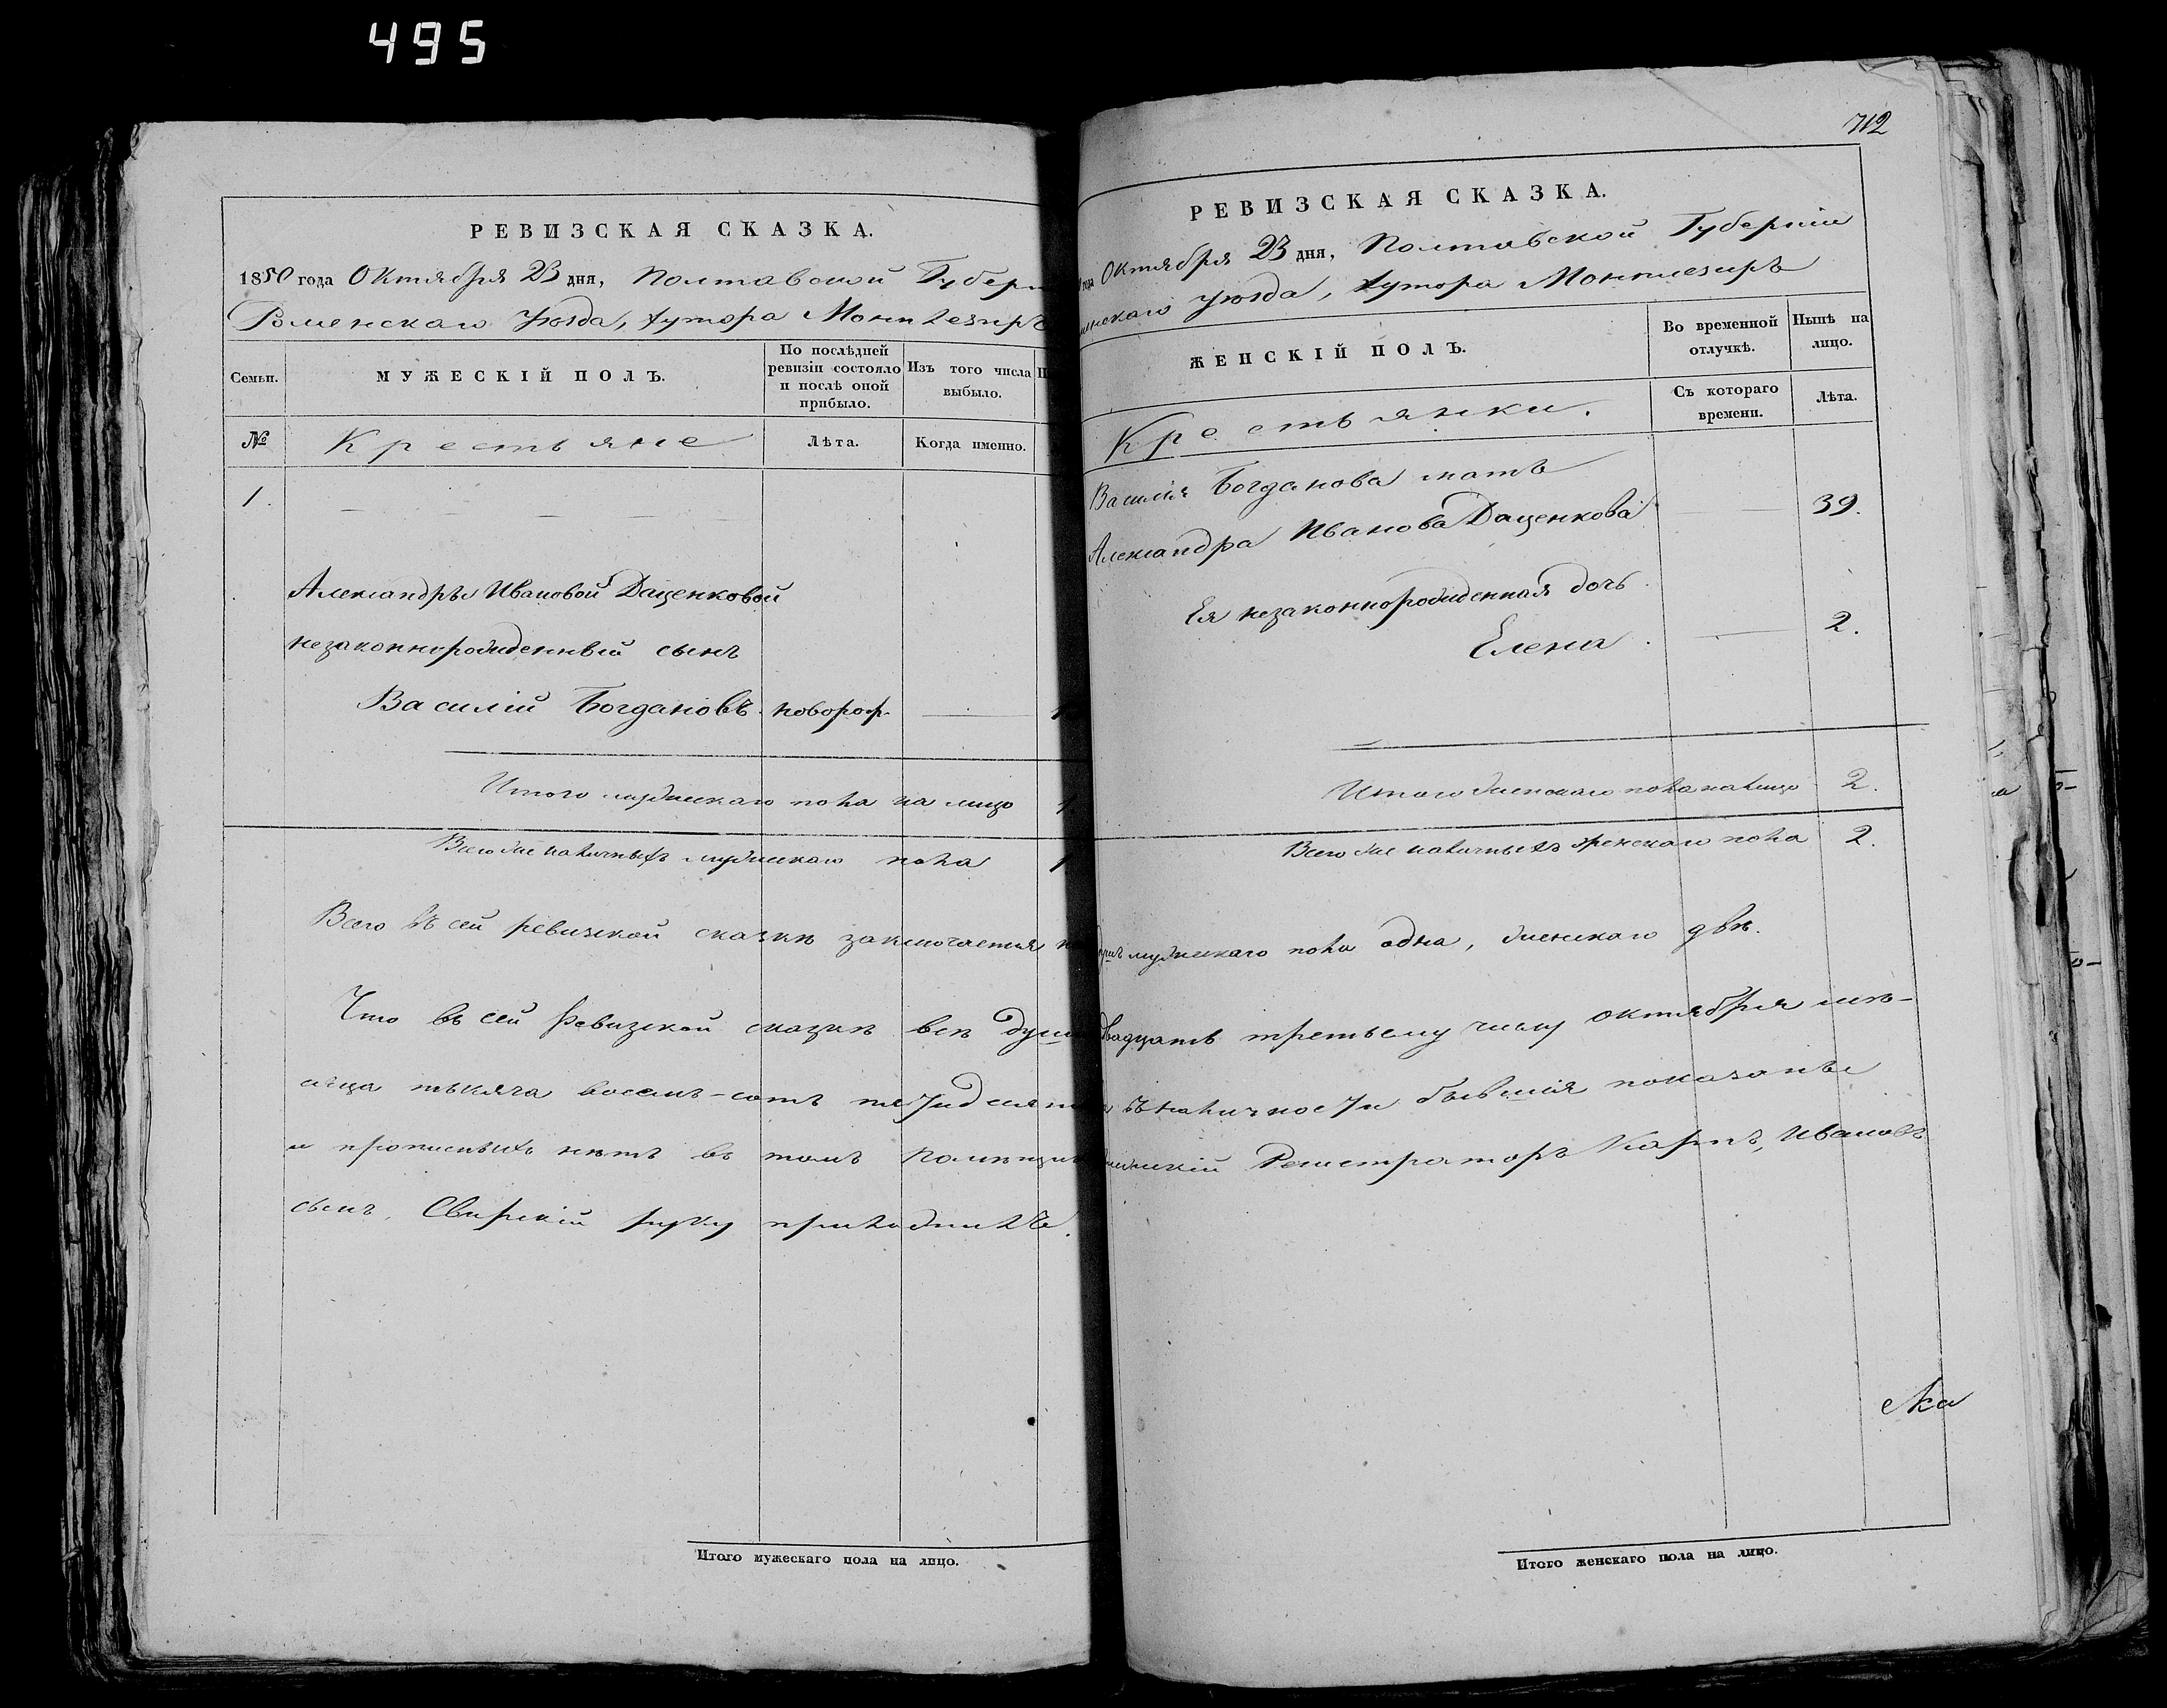 495
РЕВИЗСКАЯ СКАЗКА.
1850 года Октября 23 дня, Полтавской Губерн
Роменскаго Уѣзда, Хутора Монплезиръ
Семьи.
МУЖЕСКІЙ ПОЛЪ.
По послѣдней ревизіи состояло и послѣ оной прибыло.
Изъ того числа выбыло.
№
Крестьяне
Лѣта.
Когда именно.
1.
Александры Ивановой Даценковой
незаконнорожденный сынъ
Василій Богдановъ. новорож.
Итого мужескаго пола на лицо 1
Всего же наличныхъ мужескаго пола 1
Всего въ сей ревизской сказкѣ заключается
Что въ сей Ревизской сказкѣ всѣ души
сяца тысяча восемь-сотъ пятидесят
и прописныхъ нѣтъ въ томъ
сынъ, Свирскій руку приложилъ.
Итого мужескаго пола на лицо.
712
РЕВИЗСКАЯ СКАЗКА.
года Октября 23 дня, Полтавской Губерніи
менскаго Уѣзда, Хутора Монплезиръ
ЖЕНСКІЙ ПОЛЪ.
Во временной отлучкѣ.
Нынѣ на лицо.
Крестьянки.
Съ котораго времени.
Лѣта.
Василія Богданова мать
Александра Иванова Даценкова 39.
Ея незаконнорожденная дочь
Елена 2.
Итого женскаго пола на лицо 2.
Всего же наличныхъ женскаго пола 2.
душъ мужескаго пола одна, женскаго двѣ.
двадцать третьему числу октября мѣ-
въ наличности бывшія показаны
Регистраторъ Карпъ, Ивановъ
Итого женскаго пола на лицо.